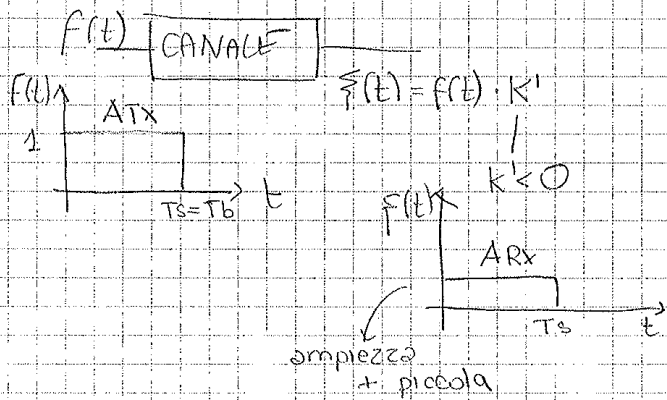 f(t) CANALE
ξ(t) = f(t) · K'
K' < 0
f(t)
ATX
1
Ts=Tb
t
f(t)
ARX
Ts
t
ampiezza
+ piccola